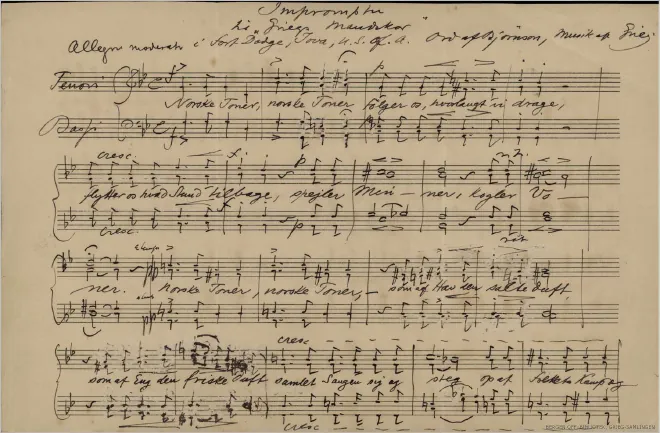 Impromptu
til "Griegs Mandskor"
i Fort Dodge, Iova, U.S. of A. Ord af Bjørnson, Musik af Grieg.
Allegro moderato
Tenori
Norske Toner, norske Toner følger os, hvorlangt vi drage,
Bassi
cresc.
flytter os hvad Stund tilbage, spejler Min - ner, kogler Vo -
cresc.
ner. norske Toner, norske Toner, - som af Hav den salte Duft
cresc
som af Eng den friske Duft samlet Sangen sig og steg op af Folkets Kamp og
cresc
BERGEN OFF. BIBLIOTEK, GRIEG-SAMLINGEN